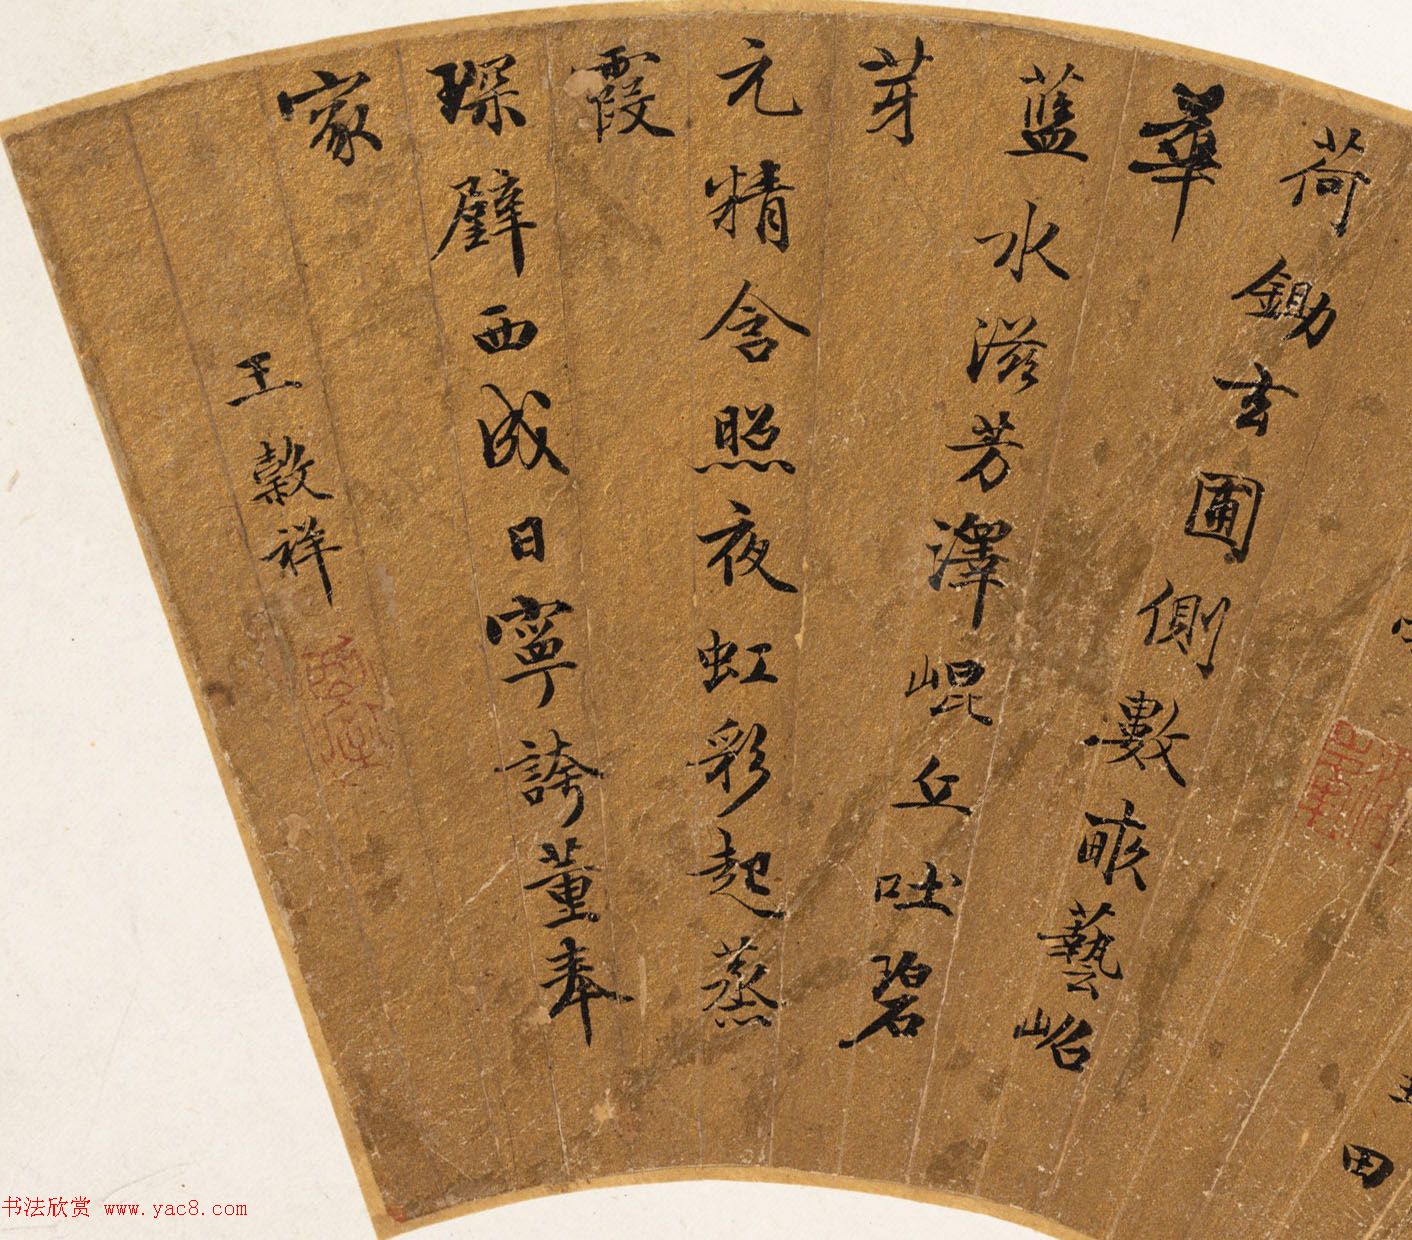 田
荷鋤玄圃側數畝藝岹
華
藍水滋芳澤崐丘吐碧
芽
元精含照夜虹彩起蒸
霞
琛璧西成日寧誇董奉
家
王榖祥
书法欣赏 www.yac8.com